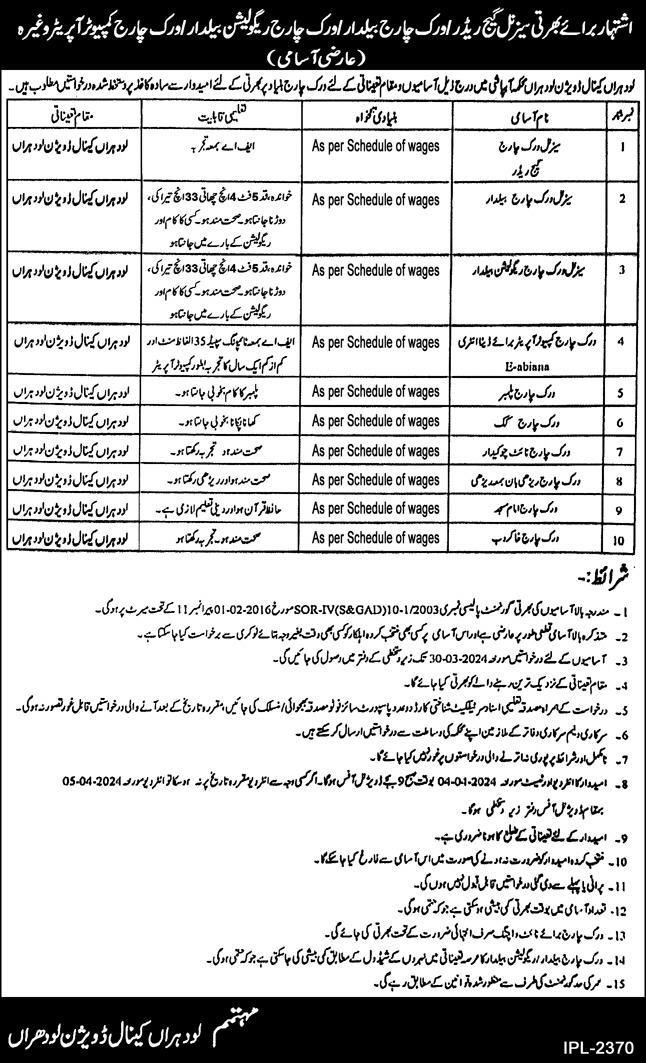 اشتہار برائے بھرتی سیزنل گیج ریڈر/ورک چارج بیلدار/ورک چارج ریگولیشن بیلدار/ورک چارج کمپیوٹر آپریٹر وغیرہ
(عارضی آسامی)
لودہراں کینال ڈویژن لودہراں محکمہ آبپاشی میں درج ذیل آسامیوں و مقام تعیناتی کے لئے ورک چارج بنیاد پر بھرتی کے لئے امیدوار سے سادہ کاغذ پر دستخط شدہ درخواستیں مطلوب ہیں۔
نمبر شمار نام آسامی بنیادی تنخواہ تعلیمی قابلیت مقام تعیناتی
1 سیزنل ورک چارج As per Schedule of wages ایف اے بمعہ تجربہ لودہراں کینال ڈویژن لودہراں
گیج ریڈر
2 سیزنل ورک چارج بیلدار As per Schedule of wages خواندہ، قد 5 فٹ 4 انچ چھاتی 33 انچ تیراکی، لودہراں کینال ڈویژن لودہراں
دوڑنا جانتا ہو۔ صحت مند ہو۔ کسی کا کام اور
ریگولیشن کے بارے میں جانتا ہو
3 سیزنل ورک چارج ریگولیشن بیلدار As per Schedule of wages خواندہ، قد 5 فٹ 4 انچ چھاتی 33 انچ تیراکی، لودہراں کینال ڈویژن لودہراں
دوڑنا جانتا ہو۔ صحت مند ہو۔ کسی کا کام اور
ریگولیشن کے بارے میں جانتا ہو
4 ورک چارج کمپیوٹر آپریٹر برائے ڈیٹا انٹری As per Schedule of wages ایف اے بمعہ ٹائپنگ سپیڈ 35 الفاظ منٹ اور لودہراں کینال ڈویژن لودہراں
E-abiana کم از کم ایک سال کا تجربہ بطور کمپیوٹر آپریٹر
5 ورک چارج پلمبر As per Schedule of wages پلمبر کا کام بخوبی جانتا ہو۔ لودہراں کینال ڈویژن لودہراں
6 ورک چارج کک As per Schedule of wages کھانا پکانا بخوبی جانتا ہو۔ لودہراں کینال ڈویژن لودہراں
7 ورک چارج نائٹ چوکیدار As per Schedule of wages صحت مند ہو۔ تجربہ رکھتا ہو۔ لودہراں کینال ڈویژن لودہراں
8 ورک چارج ریڑھی بان بمعہ ریڑھی As per Schedule of wages صحت مند ہو اور ریڑھی رکھتا ہو۔ لودہراں کینال ڈویژن لودہراں
9 ورک چارج امام مسجد As per Schedule of wages حافظ قرآن ہو اور دینی تعلیم لازمی ہے۔ لودہراں کینال ڈویژن لودہراں
10 ورک چارج خاکروب As per Schedule of wages صحت مند ہو۔ تجربہ رکھتا ہو لودہراں کینال ڈویژن لودہراں
شرائط:۔
1۔ مندرجہ بالا آسامیوں کی بھرتی گورنمنٹ پالیسی نمبری SOR-IV(S&GAD)10-1/2003 مورخہ 01-02-2016 پیرا نمبر 11 کے تحت میرٹ پر ہوگی۔
2۔ متذکرہ بالا آسامی قطعی طور پر عارضی ہے اور اس آسامی پر کسی بھی منتخب کردہ اہلکار کو کسی بھی وقت بغیر وجہ بتائے نوکری سے برخواست کیا جا سکتا ہے۔
3۔ آسامیوں کے لئے درخواستیں مورخہ 30-03-2024 تک زیر دستخطی کے دفتر میں وصول کی جائیں گی۔
4۔ مقام تعیناتی کے نزدیک ترین رہنے والے کو بھرتی کیا جائے گا۔
5۔ درخواست کے ہمراہ مصدقہ تعلیمی اسناد، سرٹیفکیٹ شناختی کارڈ دو عدد پاسپورٹ سائز فوٹو مصدقہ بھجوائی/منسلک کی جائیں، مقررہ تاریخ کے بعد آنے والی درخواستیں قابل غور تصور نہ ہوگی۔
6۔ سرکاری و نیم سرکاری دفاتر کے ملازمین اپنے محکمہ کی وساطت سے درخواستیں ارسال کر سکتے ہیں۔
7۔ نامکمل اور شرائط پر پوری نہ اترنے والی درخواستوں پر غور نہیں کیا جائے گا۔
8۔ امیدوار کا انٹرویو اور ٹیسٹ مورخہ 04-04-2024 بوقت صبح 9 بجے ڈویژنل آفس ہوگا۔ اگر کسی وجہ سے انٹرویو مقررہ تاریخ پر نہ ہو سکا تو انٹرویو مورخہ 05-04-2024
بمقام ڈویژنل آفس دفتر زیر دستخطی ہوگا۔
9۔ امیدوار کے لئے تعیناتی کے ضلع کا ہونا ضروری ہے۔
10۔ منتخب کردہ امیدوار کو ضرورت نہ ہونے کی صورت میں اس آسامی سے فارغ کیا جا سکے گا۔
11۔ پرانی یا پہلے سے دی گئی درخواستیں قابل قبول نہیں ہوں گی۔
12۔ تعداد آسامی میں بوقت بھرتی کمی بیشی ہو سکتی ہے جو کہ حتمی ہوگی۔
13۔ ورک چارج برائے نائٹ واچنگ صرف انتہائی ضرورت کے تحت بھرتی کی جائے گی۔
14۔ ورک چارج بیلدار/ریگولیشن بیلدار کا عرصہ تعیناتی میں نہروں کے شیڈول کے مطابق کمی بیشی کی جا سکتی ہے جو کہ حتمی ہوگی۔
15۔ عمر کی حد گورنمنٹ کی طرف سے منظور شدہ قوانین کے مطابق رہے گی۔
مہتمم لودہراں کینال ڈویژن لودھراں
IPL-2370